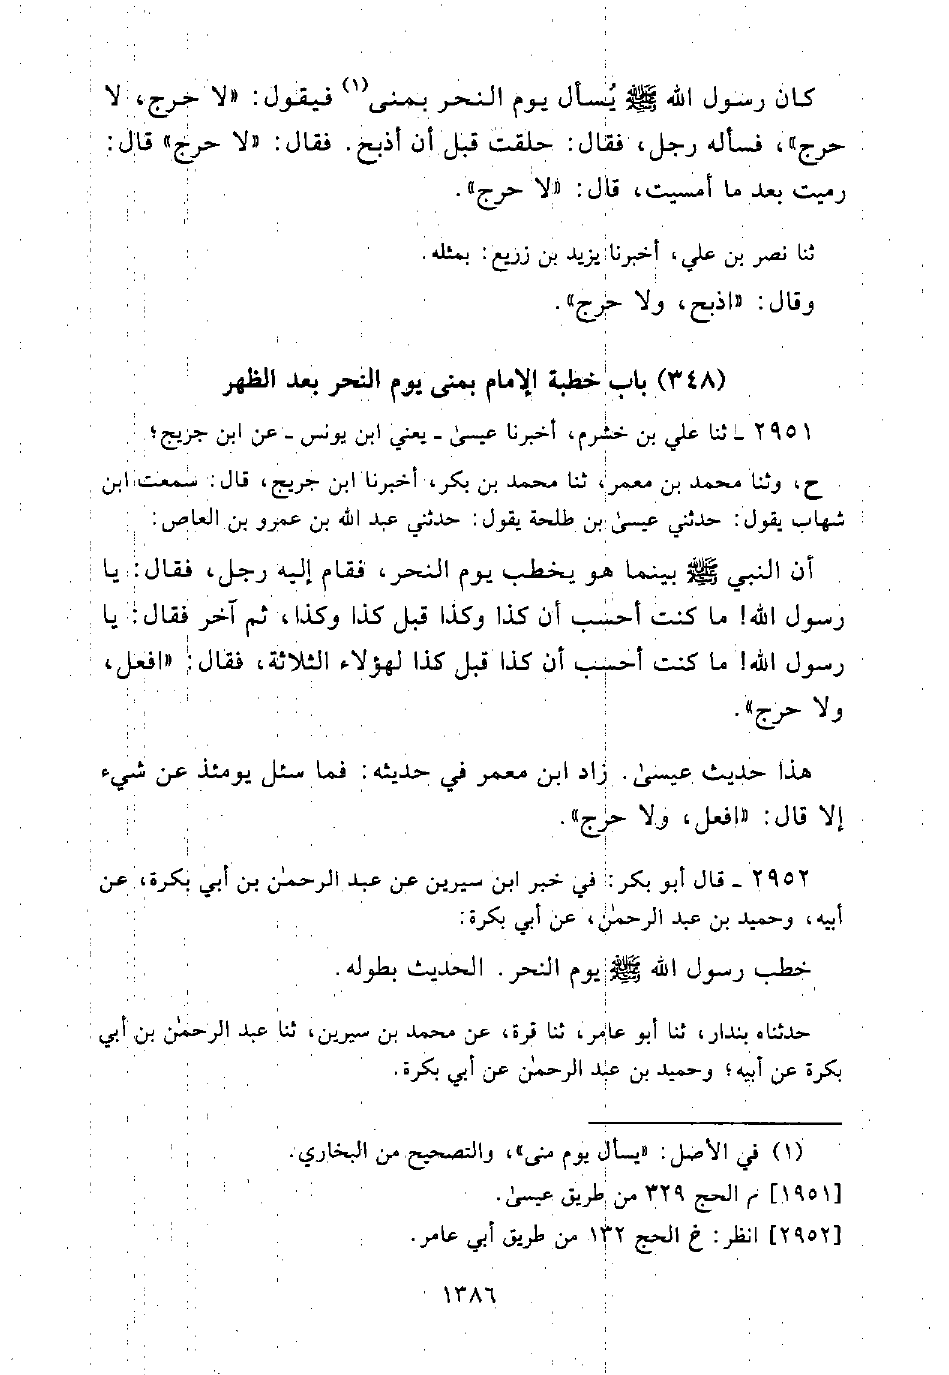 كان رسول الله ﷺ يُسأل يوم النحر بمنى(١) فيقول: «لا حرج، لا
حرج»، فسأله رجل، فقال: حلقت قبل أن أذبح. فقال: «لا حرج» قال:
رميت بعد ما أمسيت، قال: «لا حرج».
ثنا نصر بن علي، أخبرنا يزيد بن زريع: بمثله.
وقال: «اذبح، ولا حرج».
(٣٤٨) باب خطبة الإمام بمنى يوم النحر بعد الظهر
٢٩٥١ ـ ثنا علي بن خشرم، أخبرنا عيسىٰ ـ يعني ابن يونس ـ عن ابن جريج؛
ح، وثنا محمد بن معمر، ثنا محمد بن بكر، أخبرنا ابن جريج، قال: سمعت ابن
شهاب يقول: حدثني عيسىٰ بن طلحة يقول: حدثني عبد الله بن عمرو بن العاص:
أن النبي ﷺ بينما هو يخطب يوم النحر، فقام إليه رجل، فقال: يا
رسول الله! ما كنت أحسب أن كذا وكذا قبل كذا وكذا، ثم آخر فقال: يا
رسول الله! ما كنت أحسب أن كذا قبل كذا لهؤلاء الثلاثة، فقال: «افعل،
ولا حرج».
هذا حديث عيسىٰ. زاد ابن معمر في حديثه: فما سئل يومئذ عن شيء
إلا قال: «افعل، ولا حرج».
٢٩٥٢ ـ قال أبو بكر: في خبر ابن سيرين عن عبد الرحمٰن بن أبي بكرة، عن
أبيه، وحميد بن عبد الرحمٰن، عن أبي بكرة:
خطب رسول الله ﷺ يوم النحر. الحديث بطوله.
حدثناه بندار، ثنا أبو عامر، ثنا قرة، عن محمد بن سيرين، ثنا عبد الرحمٰن بن أبي
بكرة عن أبيه؛ وحميد بن عبد الرحمٰن عن أبي بكرة.
(١) في الأصل: «يسأل يوم منى»، والتصحيح من البخاري.
[١٩٥١] م الحج ٣٢٩ من طريق عيسىٰ.
[٢٩٥٢] انظر: خ الحج ١٣٢ من طريق أبي عامر.
١٣٨٦